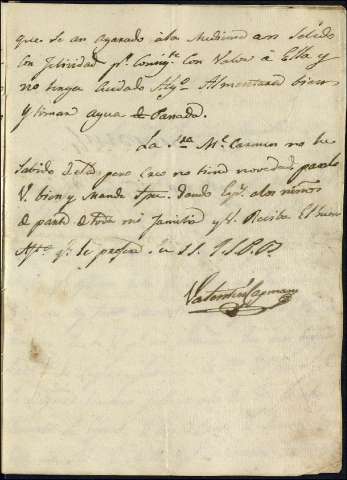 que se an agarado a los Medicina an Salido
con felicidad p.r Consig.te Con Valor á Ella y
no tenga Cuidado Alg.o Alimentarse bien
y tomar agua de Panada.
La S.ra M.a Carmen no he
Sabido de ella pero Creo no tiene novedad paselo
V. bien y Mande Spre. dando Exp.s a los niños
de parte de toda mi familia y V. Reciba El buen
Af.to q.e le profesa su S. S. Q. S. M. B.
Valentin Capmany